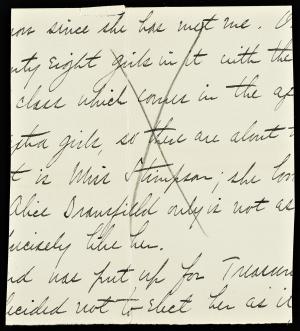 now since she has met me. O
nty Eight girls in it with the
class which comes in the af
girls, so there are about t
t is Miss Stimpson; she loo
Alice Dransfield only is not as
recisely like her.
nd was put up for Treasur
decided not to Elect her as it